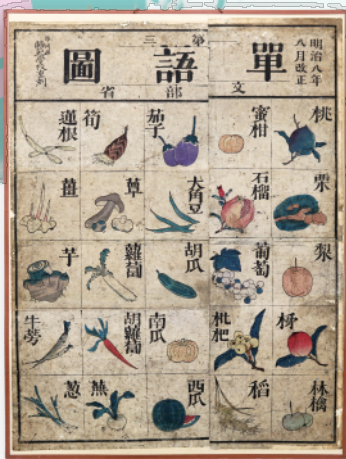 明治八年
八月改正
第三
單語圖
文部省
桃
栗
梨
柿
林檎
蜜柑
石榴
葡萄
枇杷
稻
茄子
大角豆
胡瓜
南瓜
西瓜
筍
蕈
蘿蔔
胡蘿蔔
蕪
蓮根
薑
芋
牛蒡
葱